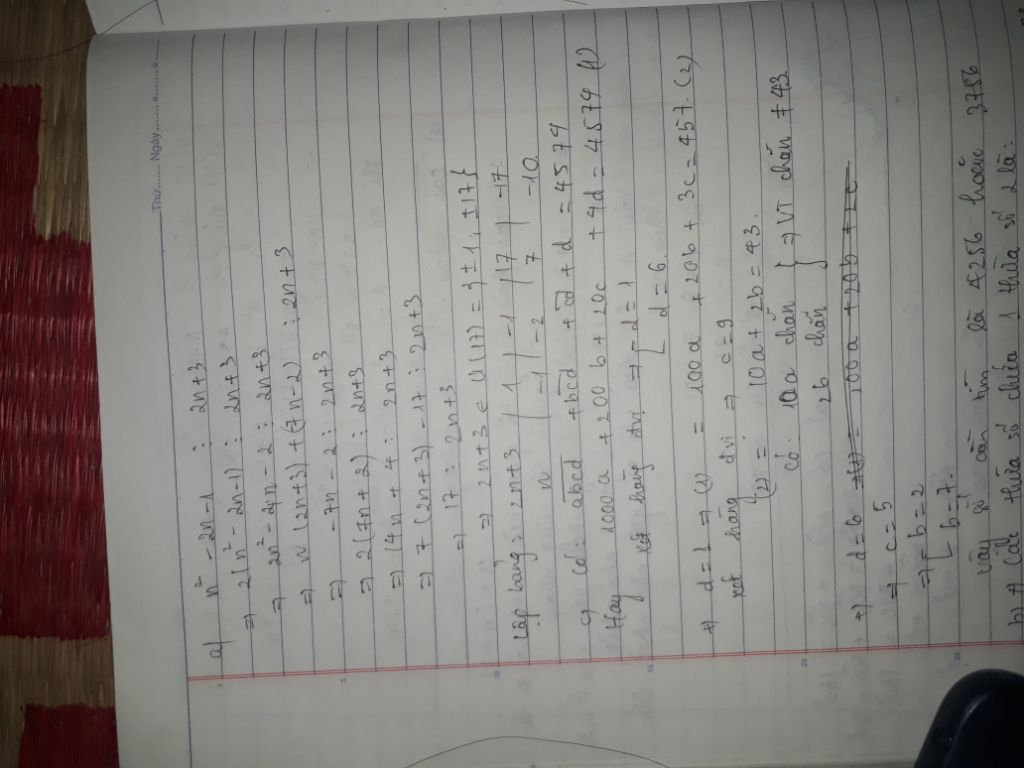 Thứ............Ngày............
a) n² - 2n - 1 ⋮ 2n+3
⇒ 2(n² - 2n - 1) ⋮ 2n+3
⇒ 2n² - 4n - 2 ⋮ 2n+3
⇒ n(2n+3) + (7n-2) ⋮ 2n+3
⇒ -7n - 2 ⋮ 2n+3
⇒ 2(7n+2) ⋮ 2n+3
⇒ 14n + 4 ⋮ 2n+3
⇒ 7(2n+3) - 17 ⋮ 2n+3
⇒ 17 ⋮ 2n+3
⇒ 2n+3 ∈ Ư(17) = {±1, ±17}
Lập bảng: 2n+3 | 1 | -1 | 17 | -17
n | -1 | -2 | 7 | -10
c) Có: abcd + bcd + cd + d = 4574
Hay 1000a + 200b + 20c + 4d = 4574 (1)
xét hàng đvị ⇒ [ d = 1
d = 6
+) d = 1 ⇒ (1) = 100a + 20b + 3c = 457. (2)
xét hàng đvi ⇒ c = 9
(2) = 10a + 2b = 43.
Có: 10a chẵn } ⇒ Vì chẵn ≠ 43
2b chẵn
+) d = 6 ⇒ (1) = 100a + 20b + 12c
⇒ c = 5
⇒ [ b = 2
b = 7.
Vậy số cần tìm là 4256 hoặc 3756
b) * Các thừa số chứa 1 thừa số 2 là: